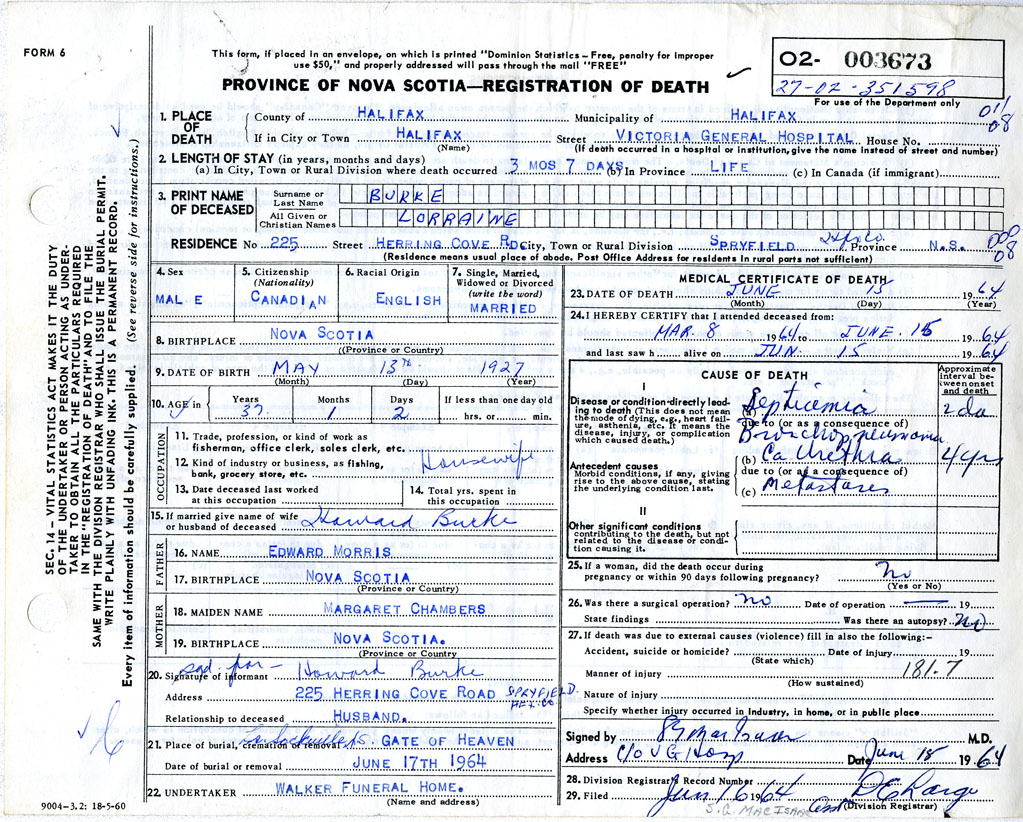 FORM 6
This form, if placed in an envelope, on which is printed "Dominion Statistics – Free, penalty for improper
use $50," and properly addressed will pass through the mail "FREE"
PROVINCE OF NOVA SCOTIA—REGISTRATION OF DEATH
02- 003673
27-02-351598
For use of the Department only
SEC. 14 – VITAL STATISTICS ACT MAKES IT THE DUTY
OF THE UNDERTAKER OR PERSON ACTING AS UNDER-
TAKER TO OBTAIN ALL THE PARTICULARS REQUIRED
IN THE "REGISTRATION OF DEATH" AND TO FILE THE
SAME WITH THE DIVISION REGISTRAR WHO SHALL ISSUE THE BURIAL PERMIT.
WRITE PLAINLY WITH UNFADING INK. THIS IS A PERMANENT RECORD.
Every item of information should be carefully supplied. (See reverse side for instructions.)
1. PLACE OF DEATH County of HALIFAX Municipality of HALIFAX 01/08
If in City or Town HALIFAX (Name) Street VICTORIA GENERAL HOSPITAL House No.
(If death occurred in a hospital or institution, give the name instead of street and number)
2. LENGTH OF STAY (in years, months and days)
(a) In City, Town or Rural Division where death occurred 3 MOS 7 DAYS (b) In Province LIFE (c) In Canada (if immigrant)
3. PRINT NAME OF DECEASED Surname or Last Name BURKE
All Given or Christian Names LORRAINE
RESIDENCE No 225 Street HERRING COVE RD City, Town or Rural Division SPRYFIELD Hfx Co Province N.S. 000/08
(Residence means usual place of abode. Post Office Address for residents in rural parts not sufficient)
4. Sex MALE
5. Citizenship (Nationality) CANADIAN
6. Racial Origin ENGLISH
7. Single, Married, Widowed or Divorced (write the word) MARRIED
8. BIRTHPLACE NOVA SCOTIA
(Province or Country)
9. DATE OF BIRTH MAY 13TH 1927
(Month) (Day) (Year)
10. AGE in Years 37 Months 1 Days 2 If less than one day old hrs. or min.
OCCUPATION
11. Trade, profession, or kind of work as fisherman, office clerk, sales clerk, etc.
Housewife
12. Kind of industry or business, as fishing, bank, grocery store, etc.
13. Date deceased last worked at this occupation
14. Total yrs. spent in this occupation
15. If married give name of wife or husband of deceased Howard Burke
FATHER
16. NAME EDWARD MORRIS
17. BIRTHPLACE NOVA SCOTIA
(Province or Country)
MOTHER
18. MAIDEN NAME MARGARET CHAMBERS
19. BIRTHPLACE NOVA SCOTIA.
(Province or Country
sgd. for –
20. Signature of informant Howard Burke
Address 225 HERRING COVE ROAD SPRYFIELD HFX CO
Relationship to deceased HUSBAND.
21. Place of burial, cremation or removal Lr Sackville NS. GATE OF HEAVEN
Date of burial or removal JUNE 17TH 1964
22. UNDERTAKER WALKER FUNERAL HOME.
(Name and address)
9004-3.2: 18-5-60
MEDICAL CERTIFICATE OF DEATH
23. DATE OF DEATH JUNE 15 1964
(Month) (Day) (Year)
24. I HEREBY CERTIFY that I attended deceased from:
MAR. 8 1964 to JUNE 15 1964
and last saw h alive on JUN 15 1964
CAUSE OF DEATH
Approximate interval between onset and death
I
Disease or condition-directly leading to death (This does not mean the node of dying, e.g., heart failure, asthenia, etc. It means the disease, injury, or complication which caused death.)
(a) Septicemia 2 da
due to (or as a consequence of)
Bronchopneumonia
(b) Ca Urethra 4 yrs
Antecedent causes
Morbid conditions, if any, giving rise to the above cause, stating the underlying condition last.
due to (or as a consequence of)
(c) Metastases
II
Other significant conditions contributing to the death, but not related to the disease or condition causing it.
25. If a woman, did the death occur during pregnancy or within 90 days following pregnancy? No
(Yes or No)
26. Was there a surgical operation? No Date of operation — 19
State findings Was there an autopsy? No
27. If death was due to external causes (violence) fill in also the following:–
Accident, suicide or homicide? Date of injury 19
(State which)
Manner of injury 181.7
(How sustained)
Nature of injury
Specify whether injury occurred in Industry, in home, or in public place
Signed by M.D.
Address C/O V G Hosp Date June 15 1964
28. Division Registrar's Record Number
29. Filed Jun 16 64
(Division Registrar)
S.G. MACISAAC